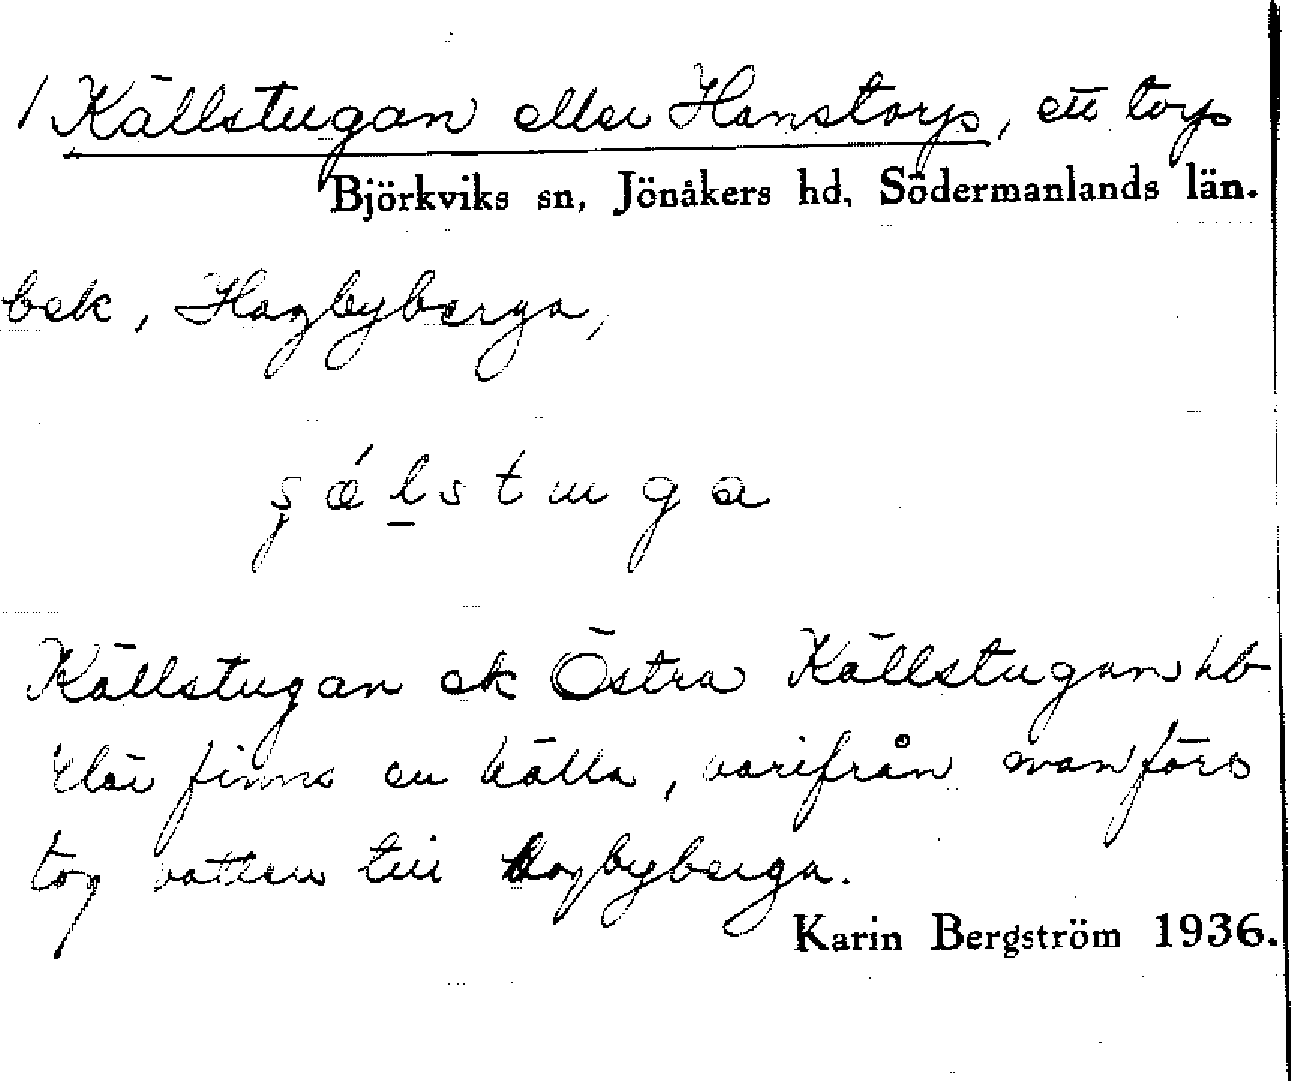 1 Källstugan eller Hanstorp, ett torp
Björkviks sn, Jönåkers hd, Södermanlands län.
bek, Hagbyberga,
s̨ ǽ l̲ s t u g a
Källstugan ek Östra Källstugan hb
Här finns en källa, varifrån man förs
tog vatten till Hagbyberga.
Karin Bergström 1936.